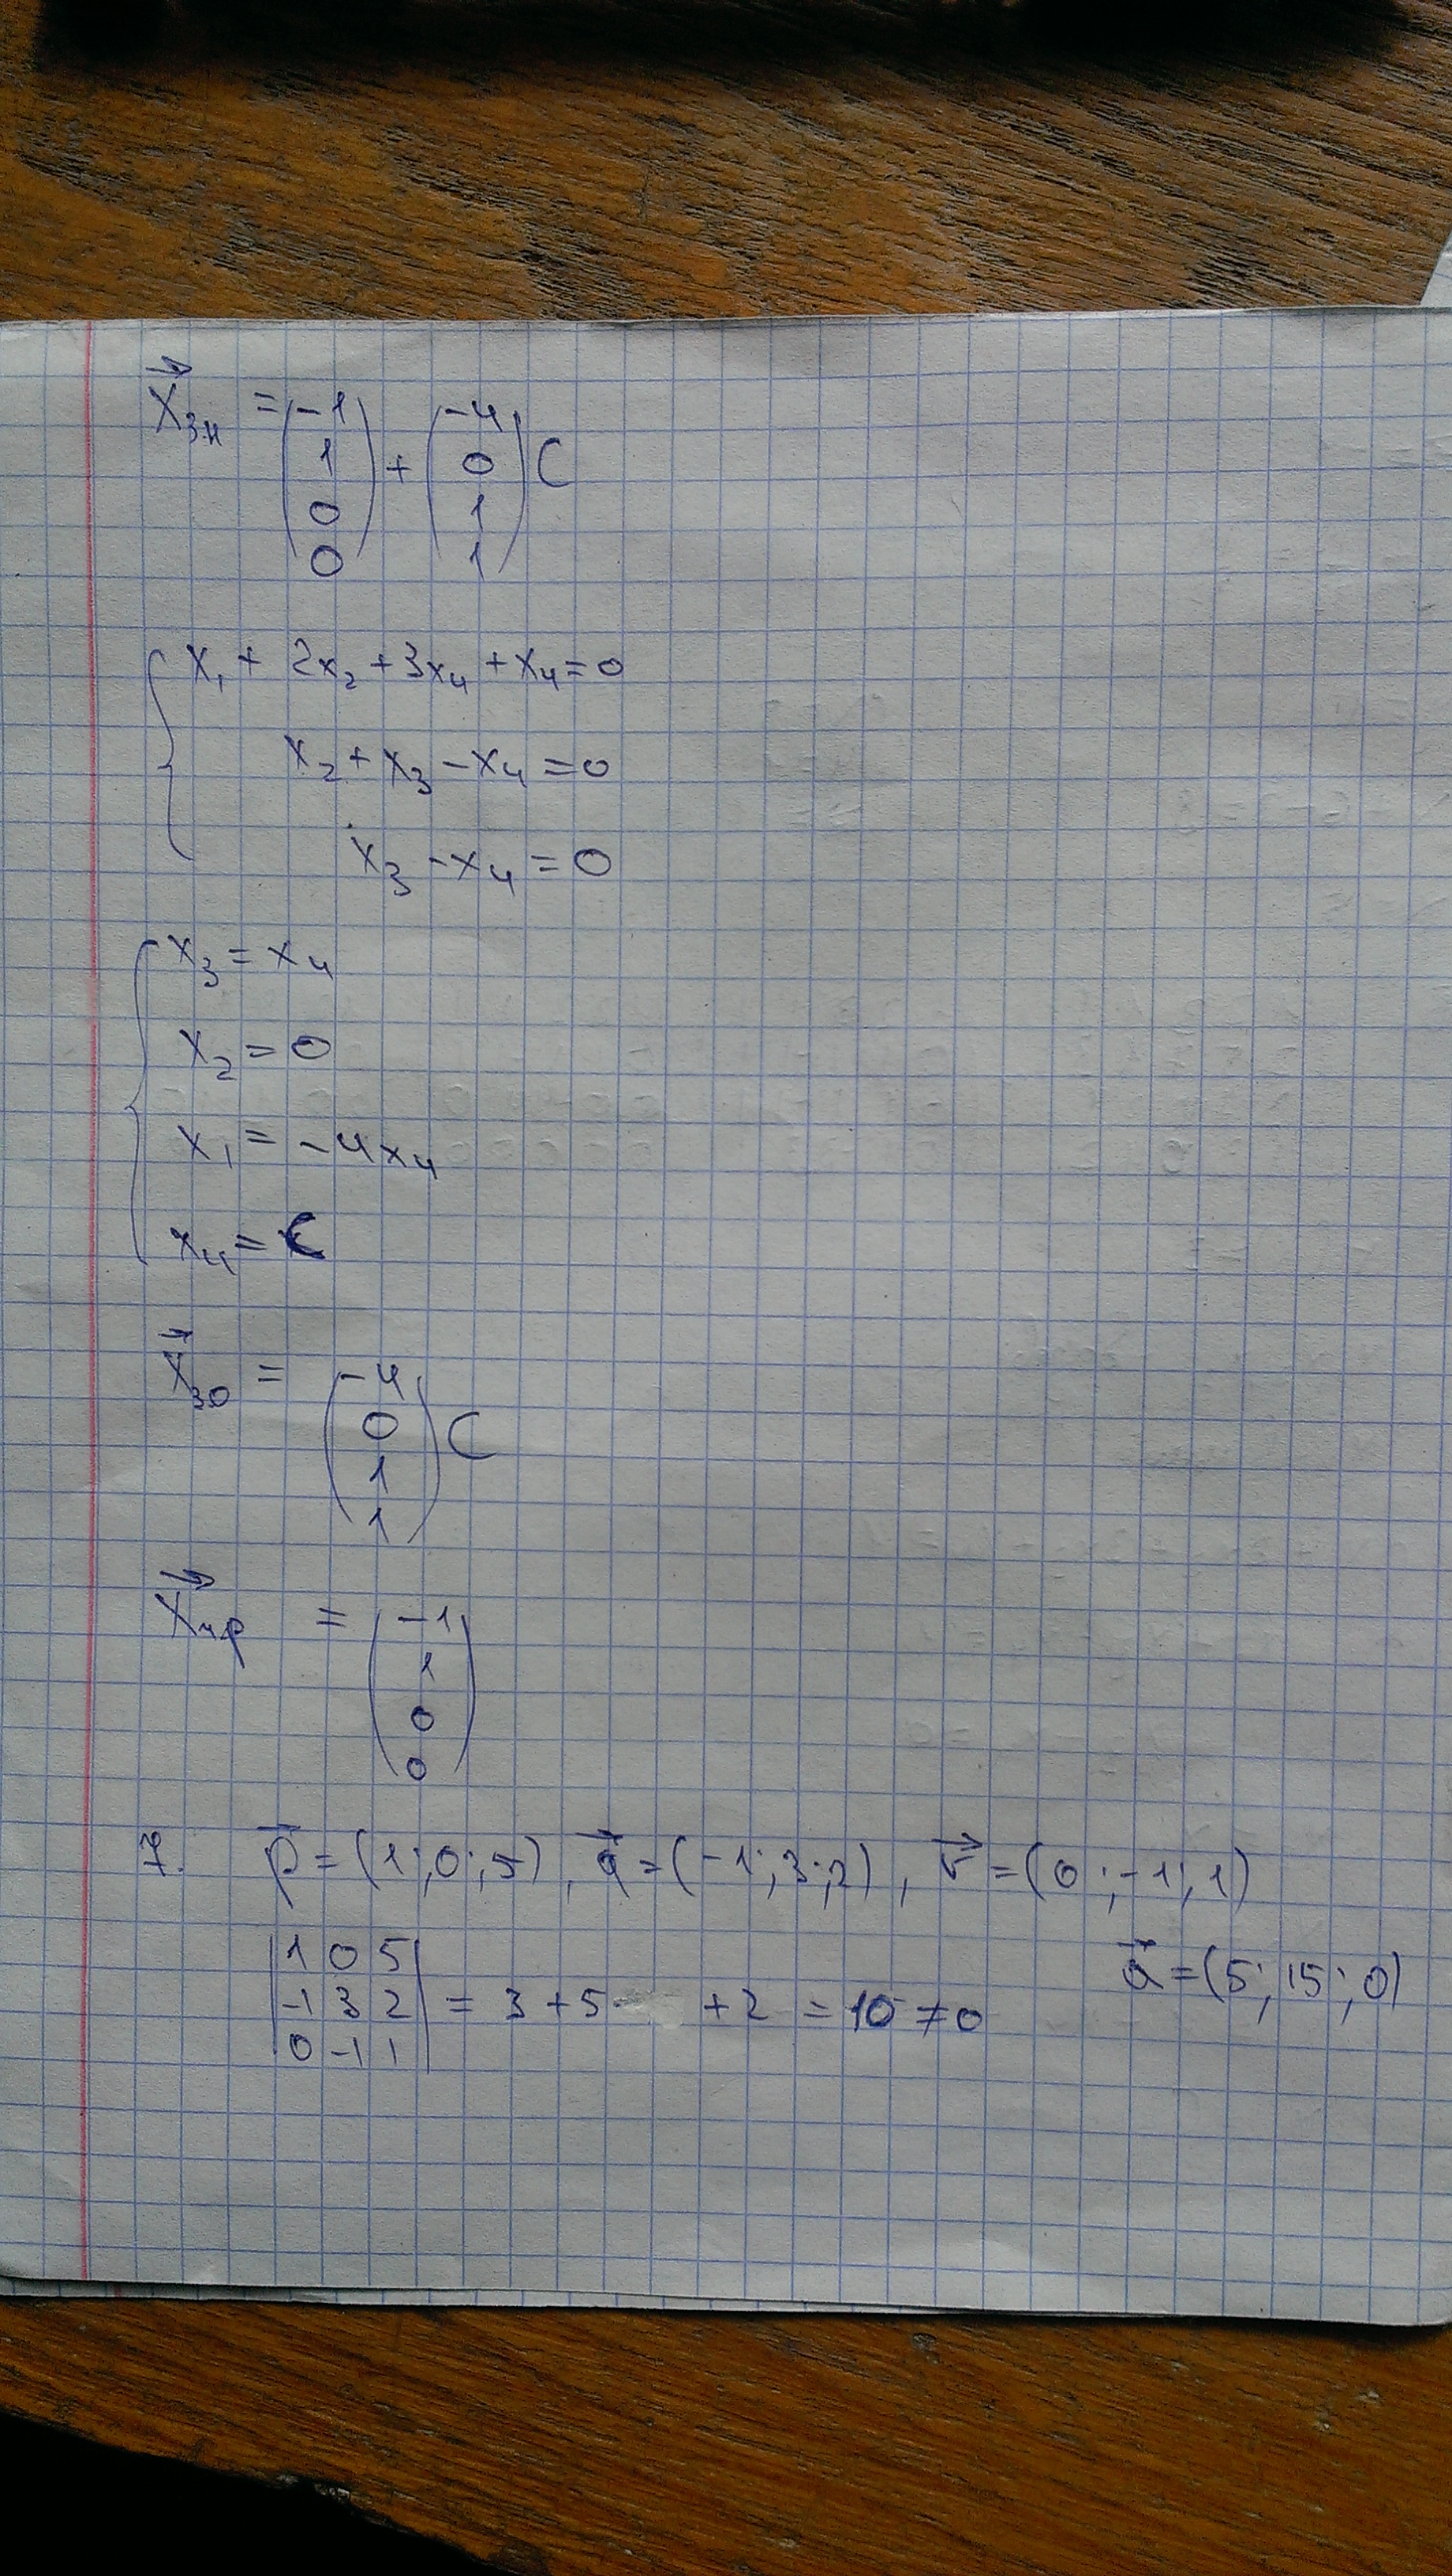 X⃗зн = (-1 1 0 0) + (-4 0 1 1) C
x₁ + 2x₂ + 3x₄ + x₄ = 0
x₂ + x₃ - x₄ = 0
x₃ - x₄ = 0
x₃ = x₄
x₂ = 0
x₁ = -4x₄
x₄ = C
X⃗зо = (-4 0 1 1) C
X⃗чр = (-1 1 0 0)
7. p⃗ = (1; 0; 5), q⃗ = (-1; 3; 2), r⃗ = (0; -1; 1)
a⃗ = (5; 15; 0)
|1 0 5|
|-1 3 2| = 3 + 5 + 2 = 10 ≠ 0
|0 -1 1|